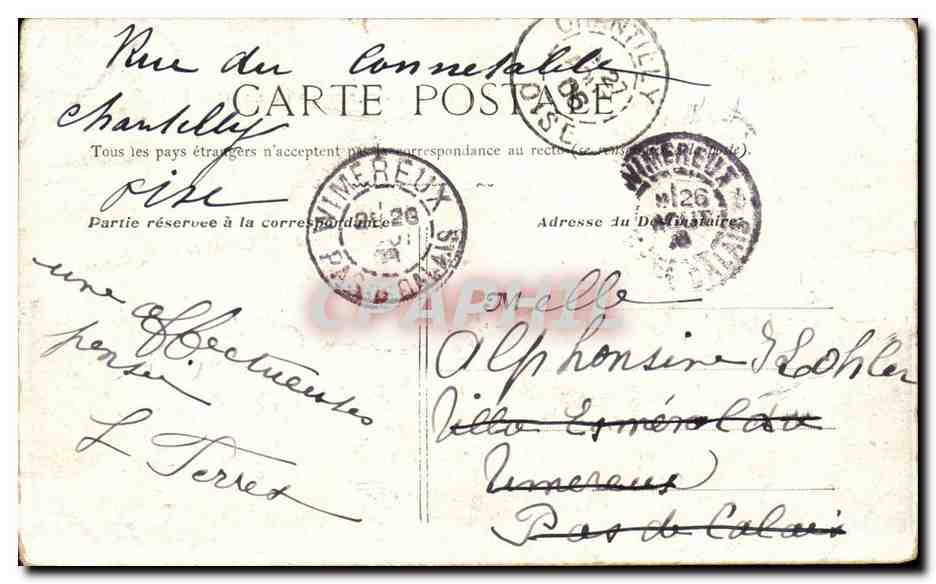 Rue du Connetable
CARTE POSTALE
Chantilly
Tous les pays étrangers n'acceptent pas la correspondance au recto (se renseigner à la poste)
Oise
Partie réservée à la correspondance
Adresse du Destinataire
CHANTILLY
27
06
OISE
WIMEREUX
26
PAS-DE-CALAIS
WIMEREUX
26
CALAIS
CPAPHIL
une affectueuses
pensée
L Terret
Melle
Alphonsine Kohler
Villa Esméralda
Wimereux
Pas de Calais